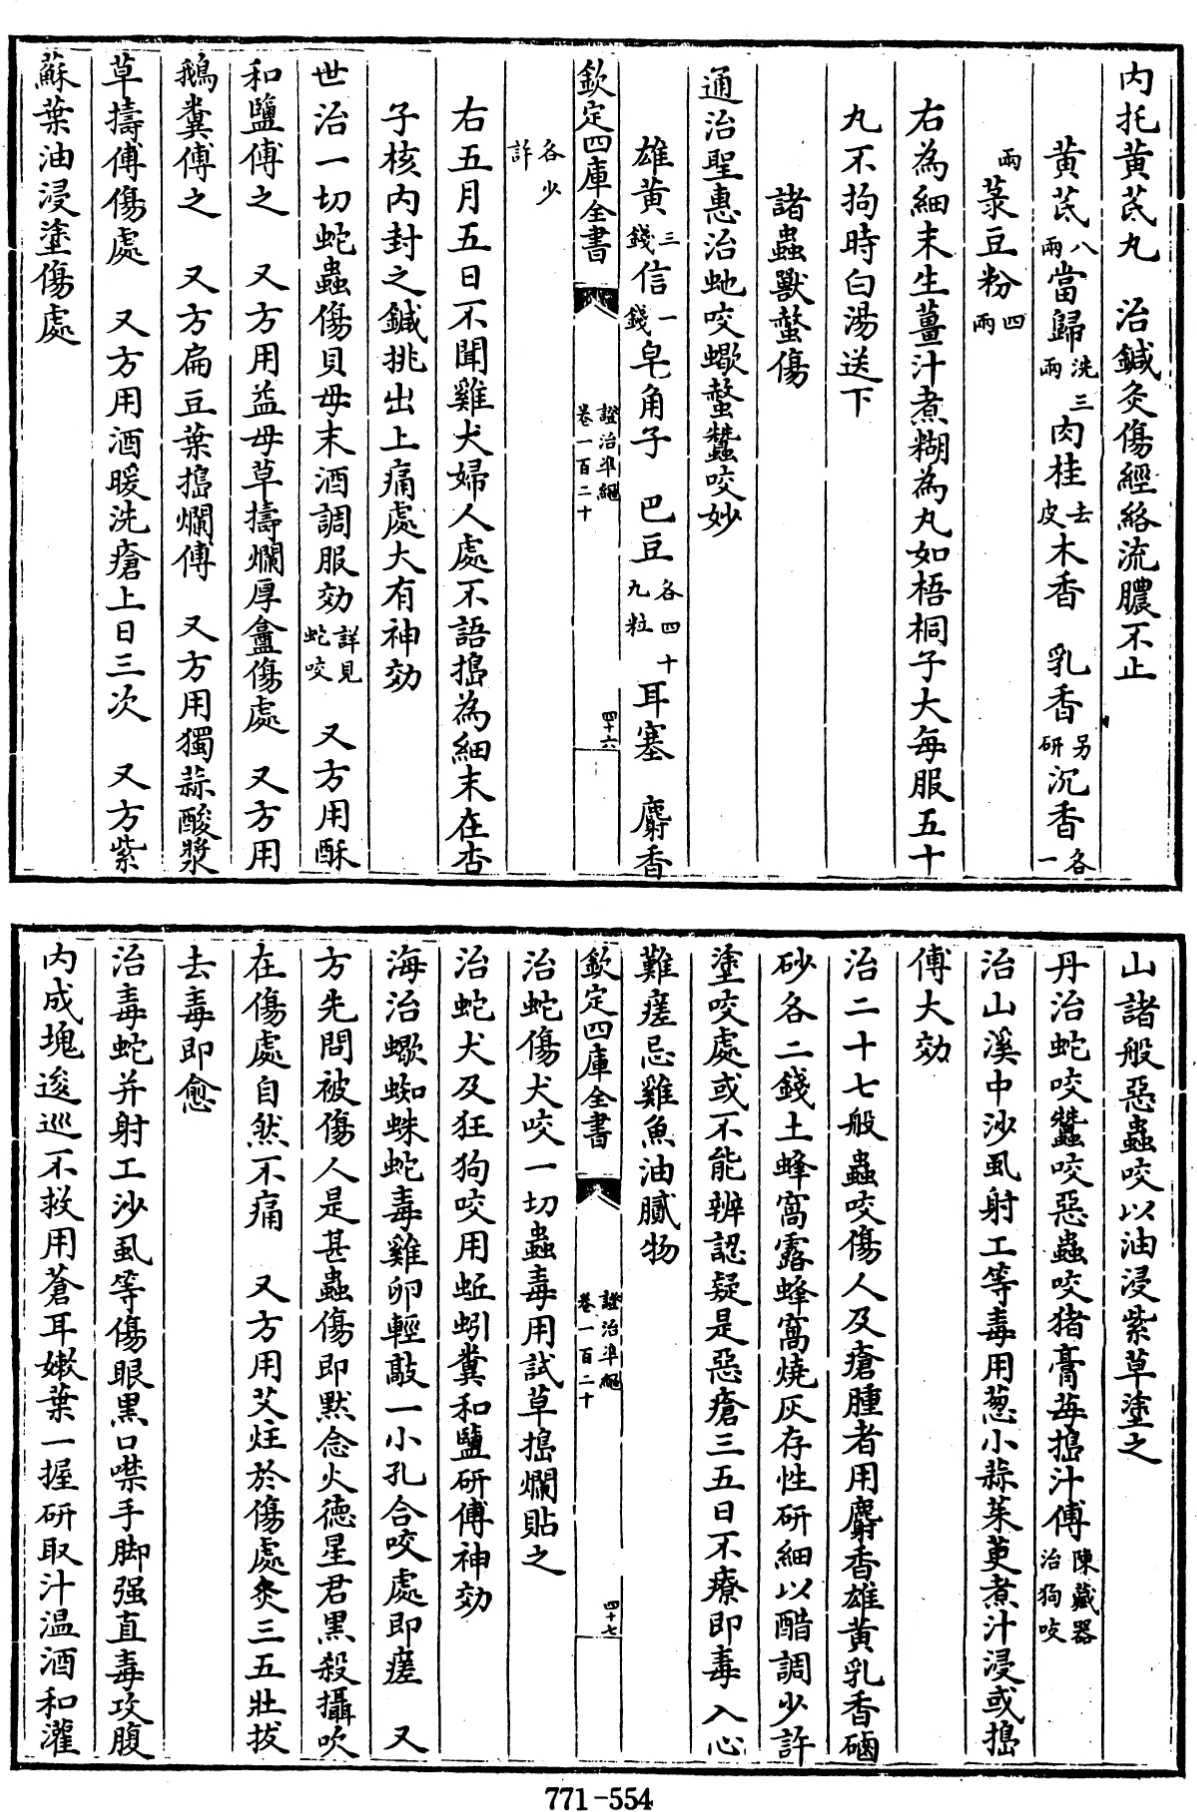 内托黃茋丸　治鍼灸傷經絡流膿不止
黃茋八兩當歸洗三兩肉桂去皮木香　乳香另研沉香各一
兩菉豆粉四兩
右為細末生薑汁煮糊為丸如梧桐子大每服五十
丸不拘時白湯送下
諸蟲獸螫傷
通治聖惠治虵咬蠍螫蠶咬妙
雄黃三錢信一錢皂角子　巴豆各四十九粒耳塞　麝香
欽定四庫全書
證治準繩
卷一百二十
四十六
各少許
右五月五日不聞雞犬婦人處不語搗為細末在杏
子核內封之鍼挑出上痛處大有神効
世治一切蛇蟲傷貝母末酒調服効詳見蛇咬　又方用酥
和鹽傅之　又方用益母草擣爛厚龕傷處　又方用
鵝糞傅之　又方扁豆葉搗爛傅　又方用獨蒜酸漿
草擣傅傷處　又方用酒暖洗瘡上日三次　又方紫
蘇葉油浸塗傷處
山諸般惡蟲咬以油浸紫草塗之
丹治蛇咬蠶咬惡蟲咬猪膏苺搗汁傅陳藏器治狗咬
治山溪中沙虱射工等毒用葱小蒜茱萸煮汁浸或搗
傅大効
治二十七般蟲咬傷人及瘡腫者用麝香雄黃乳香硇
砂各二錢土蜂窩露蜂窩燒灰存性研細以醋調少許
塗咬處或不能辨認疑是惡瘡三五日不療即毒入心
難瘥忌雞魚油膩物
欽定四庫全書
證治準繩
卷一百二十
四十七
治蛇傷犬咬一切蟲毒用試草搗爛貼之
治蛇犬及狂狗咬用蚯蚓糞和鹽研傅神効
海治蠍蜘蛛蛇毒雞卵輕敲一小孔合咬處即瘥　又
方先問被傷人是甚蟲傷即默念火德星君黑殺攝吹
在傷處自然不痛　又方用艾炷於傷處灸三五壯拔
去毒即愈
治毒蛇并射工沙虱等傷眼黒口噤手脚强直毒攻腹
內成塊逡巡不救用蒼耳嫩葉一握研取汁温酒和灌
771-554